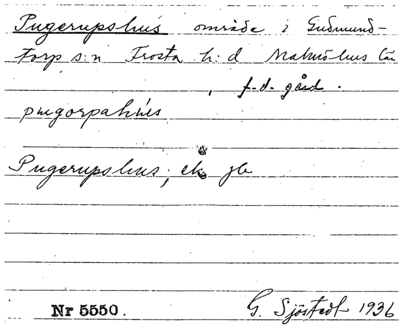 Pugerupshus område i Gudmund-
torp s:n Frosta h:d Malmöhus län
, f.d. gård.
pugorpahus
Pugerupshus, ek
Nr 5550. G. Sjöstedt 1936